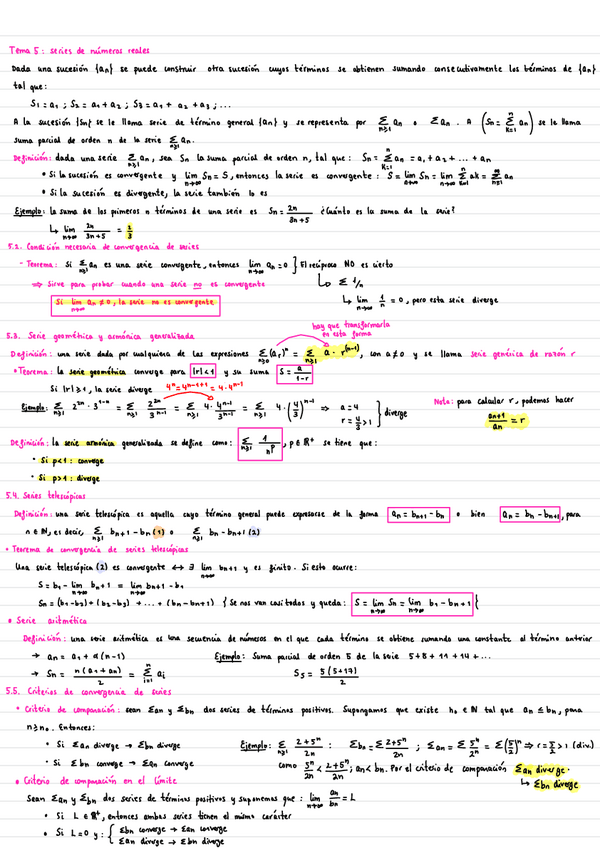 Tema 5: series de números reales
Dada una sucesión {an} se puede construir otra sucesión cuyos términos se obtienen sumando consecutivamente los términos de {an}
tal que:
S1 = a1 ; S2 = a1 + a2 ; S3 = a1 + a2 + a3 ; ...
A la sucesión {Sn} se le llama serie de término general {an} y se representa por Σ n≥1 an o Σ an . A (Sn = Σ k=1 n an) se le llama
suma parcial de orden n de la serie Σ n≥1 an.
Definición: dada una serie Σ n≥1 an, sea Sn la suma parcial de orden n, tal que: Sn = Σ k=1 n an = a1 + a2 + ... + an
• Si la sucesión es convergente y lim n→∞ Sn = S, entonces la serie es convergente : S = lim n→∞ Sn = lim n→∞ Σ k=1 n ak = Σ n=1 ∞ an
• Si la sucesión es divergente, la serie también lo es
Ejemplo: la suma de los primeros n términos de una serie es Sn = 2n / 3n+5 ¿Cuánto es la suma de la serie?
↳ lim n→∞ 2n / 3n+5 = 2/3
5.2. Condición necesaria de convergencia de series
- Teorema: Si Σ n≥1 an es una serie convergente, entonces lim n→∞ an = 0 } El recíproco NO es cierto
⇒ Sirve para probar cuando una serie no es convergente ↳ Σ 1/n
Si lim n→∞ an ≠ 0, la serie no es convergente ↳ lim n→∞ 1/n = 0, pero esta serie diverge
5.3. Serie geométrica y armónica generalizada
hay que transformarla
en esta forma
Definición: una serie dada por cualquiera de las expresiones Σ n≥0 (ar)^n = Σ n≥1 a · r^(n-1), con a≠0 y se llama serie genérica de razón r
• Teorema: la serie geométrica converge para |r|<1 y su suma S = a / 1-r
Si |r|≥1, la serie diverge 4^n = 4^(n-1+1) = 4·4^(n-1)
Ejemplo: Σ n≥1 2^2n · 3^(1-n) = Σ n≥1 2^2n / 3^(n-1) = Σ n≥1 4 · 4^(n-1) / 3^(n-1) = Σ n≥1 4 · (4/3)^(n-1) ⇒ a=4 r = 4/3 > 1 } diverge
Nota: para calcular r, podemos hacer
an+1 / an = r
Definición: la serie armónica generalizada se define como: Σ n≥1 1/n^p, p ∈ ℝ+ se tiene que:
• Si p<1: converge
• Si p>1: diverge
5.4. Series telescópicas
Definición: una serie telescópica es aquella cuyo término general puede expresarse de la forma an = bn+1 - bn o bien an = bn - bn+1, para
n ∈ ℕ, es decir, Σ n≥1 bn+1 - bn (1) o Σ n≥1 bn - bn+1 (2)
• Teorema de convergencia de series telescópicas
Una serie telescópica (2) es convergente ↔ ∃ lim n→∞ bn+1 y es finito. Si esto ocurre:
S = b1 - lim n→∞ bn+1 = lim n→∞ bn+1 - b1
Sn = (b1-b2) + (b2-b3) + ... + (bn - bn+1) { Se nos van casi todos y queda: S = lim n→∞ Sn = lim n→∞ b1 - bn+1 {
• Serie aritmética
Definición: una serie aritmética es una secuencia de números en el que cada término se obtiene sumando una constante al término anterior
→ an = a1 + d(n-1) Ejemplo: Suma parcial de orden 5 de la serie 5+8+11+14+...
→ Sn = n(a1+an) / 2 = Σ i=1 n ai S5 = 5(5+17) / 2
5.5. Criterios de convergencia de series
• Criterio de comparación: sean Σan y Σbn dos series de términos positivos. Supongamos que existe n0 ∈ ℕ tal que an ≤ bn, para
n≥n0. Entonces:
• Si Σan diverge → Σbn diverge Ejemplo: Σ n≥1 2+5^n / 2n : Σbn = Σ 2+5^n / 2n ; Σan = Σ 5^n / 2^n = Σ (5/2)^n ⇒ r = 5/2 > 1 (div)
• Si Σbn converge → Σan converge como 5^n / 2n < 2+5^n / 2n ; an < bn. Por el criterio de comparación Σan diverge.
↳ Σbn diverge
• Criterio de comparación en el límite
Sean Σan y Σbn dos series de términos positivos y suponemos que : lim n→∞ an / bn = L
• Si L ∈ ℝ+, entonces ambas series tienen el mismo carácter
• Si L=0 y : { Σbn converge → Σan converge
Σan diverge → Σbn diverge